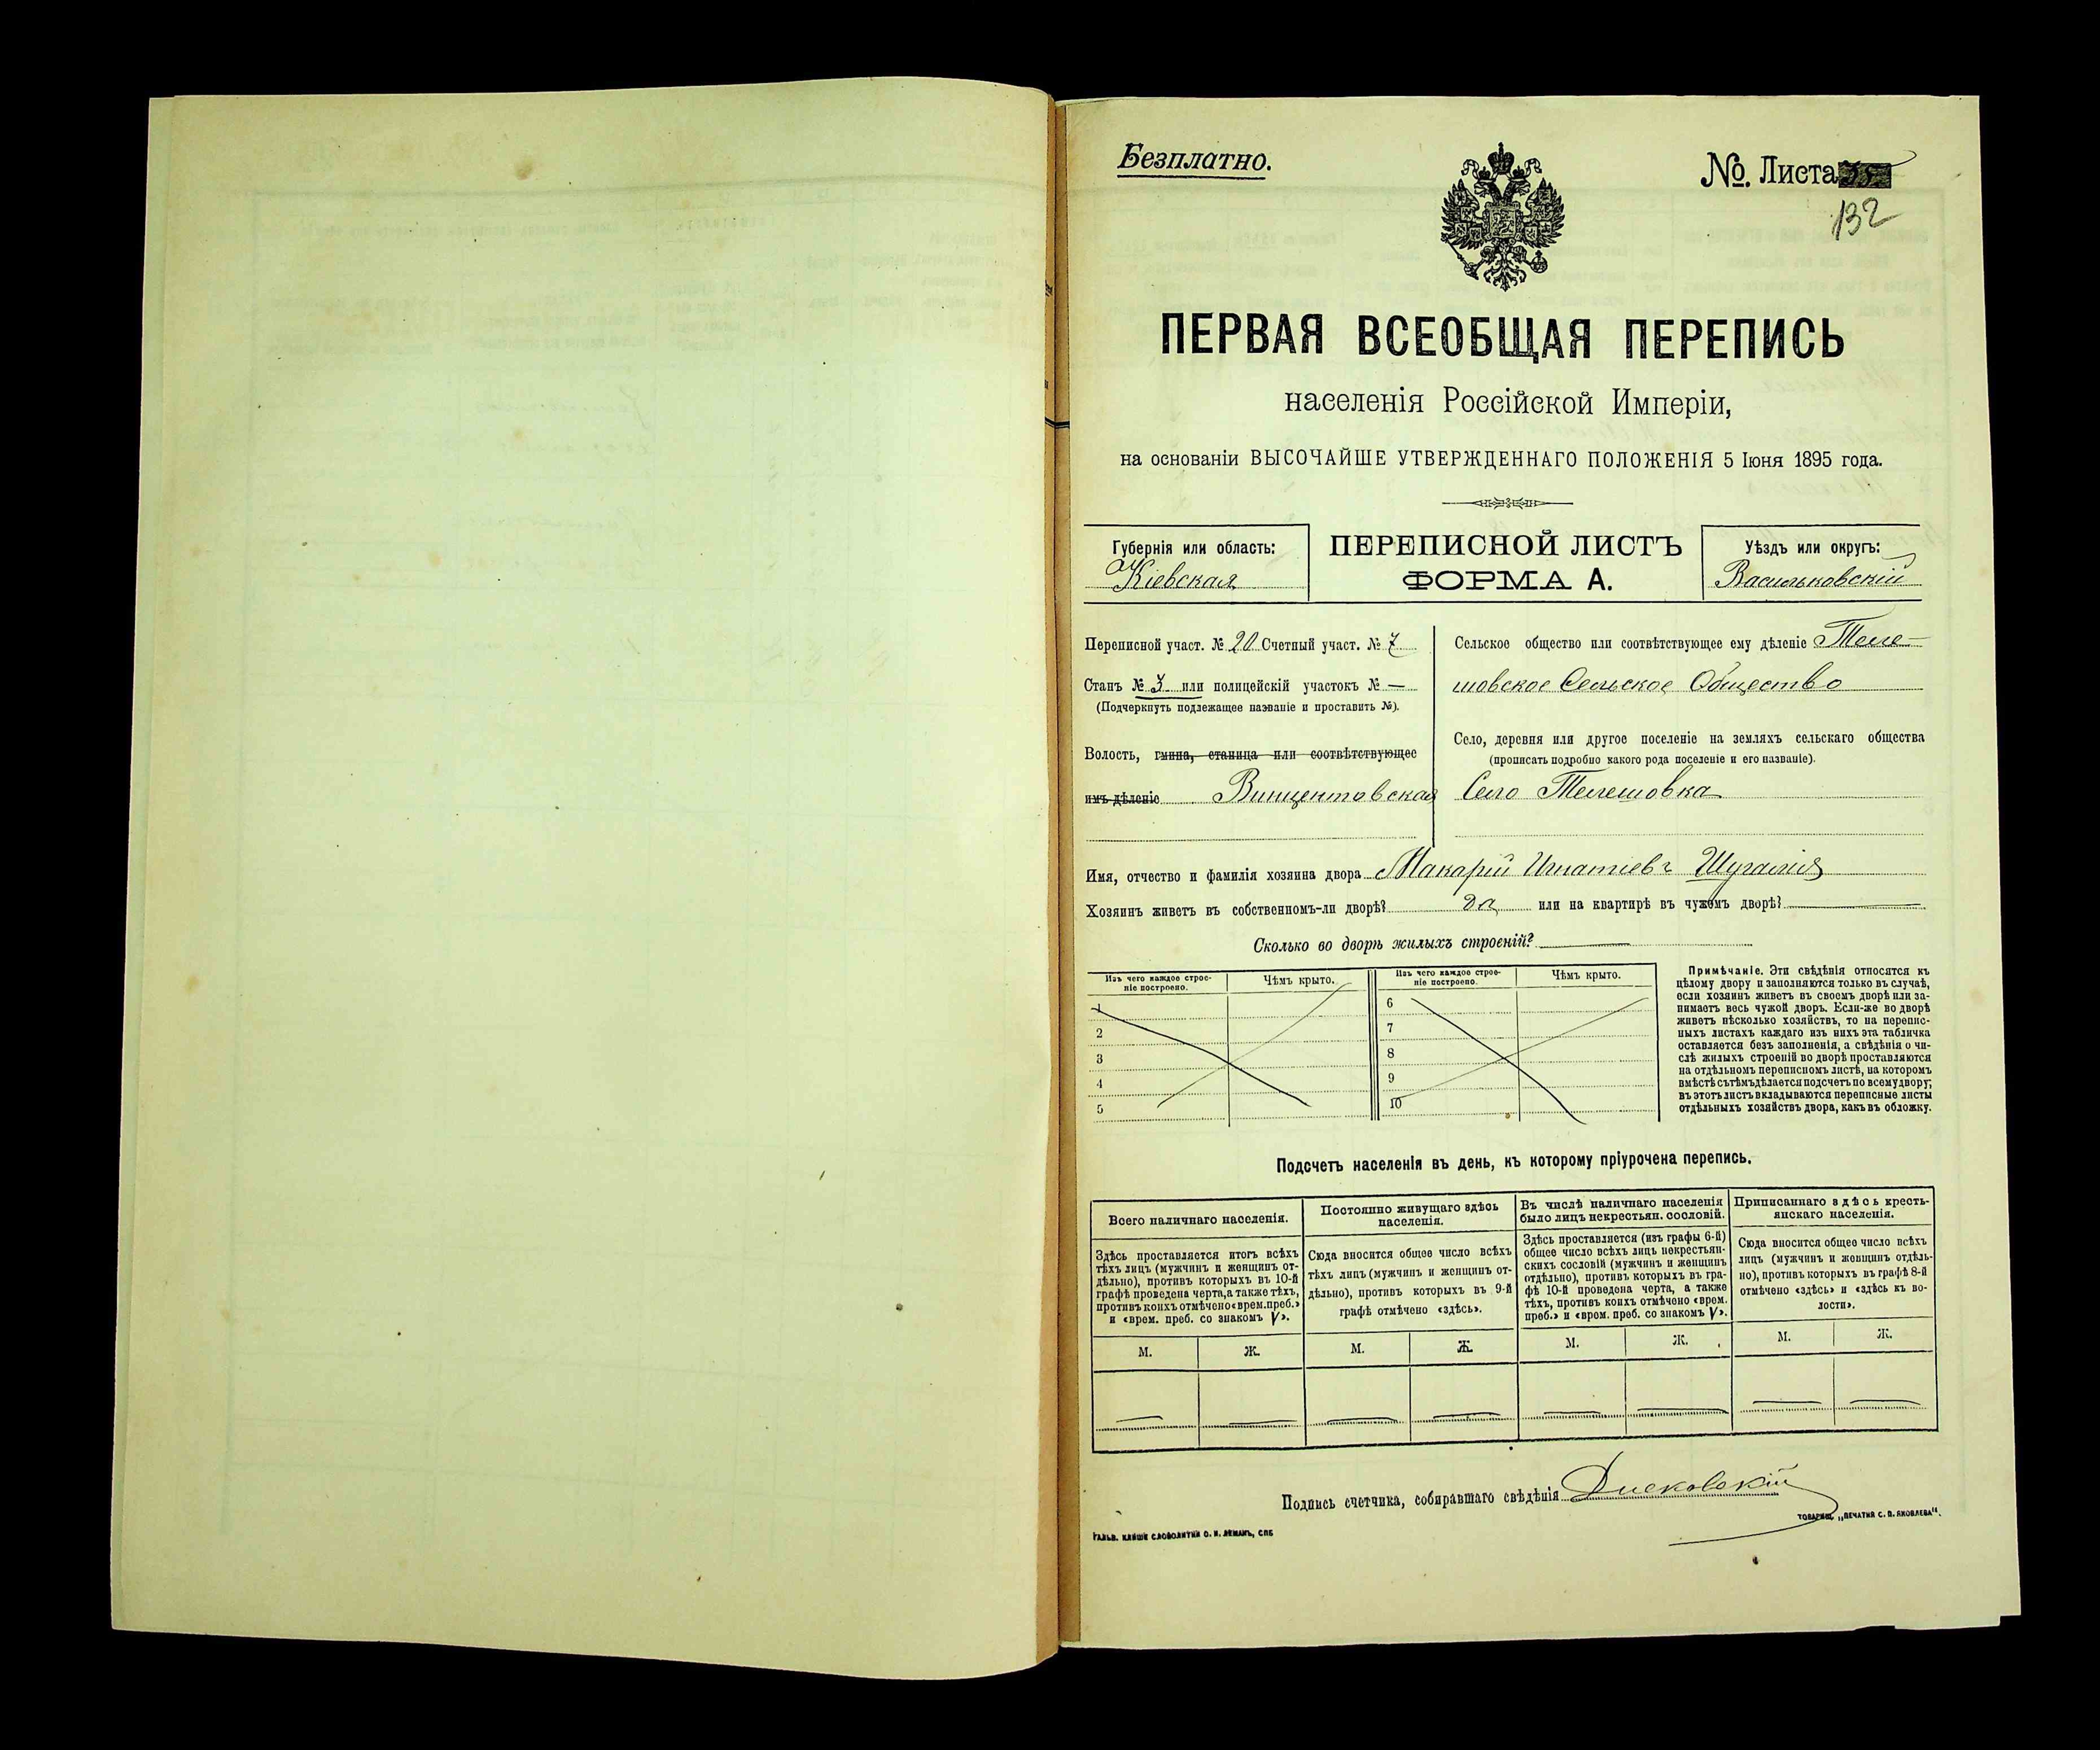 Безплатно.
№. Листа
132
ПЕРВАЯ ВСЕОБЩАЯ ПЕРЕПИСЬ
населенія Россійской Имперіи,
на основаніи ВЫСОЧАЙШЕ УТВЕРЖДЕННАГО ПОЛОЖЕНІЯ 5 Іюня 1895 года.
Губернія или область:
Кіевская
ПЕРЕПИСНОЙ ЛИСТЪ
ФОРМА А.
Уѣздъ или округъ:
Васильковскій
Переписной участ. № 20 Счетный участ. № 7
Станъ № 3 или полицейскій участокъ № —
(Подчеркнуть подлежащее названіе и проставить №).
Волость, гмина, станица или соотвѣтствующее
имъ дѣленіе Винцентовская
Сельское общество или соотвѣтствующее ему дѣленіе Теле-
шовское Сельское Общество
Село, деревня или другое поселеніе на земляхъ сельскаго общества
(прописать подробно какого рода поселеніе и его названіе).
Село Телешовка
Имя, отчество и фамилія хозяина двора Макарій Игнатіевъ Шугалія
Хозяинъ живетъ въ собственномъ-ли дворѣ? да или на квартирѣ въ чужомъ дворѣ?
Сколько во дворѣ жилыхъ строеній?
Изъ чего каждое строе-
ніе построено.
Чѣмъ крыто.
1
2
3
4
5
Изъ чего каждое строе-
ніе построено.
Чѣмъ крыто.
6
7
8
9
10
Примѣчаніе. Эти свѣдѣнія относятся къ
цѣлому двору и заполняются только въ случаѣ,
если хозяинъ живетъ въ своемъ дворѣ или за-
нимаетъ весь чужой дворъ. Если-же во дворѣ
живетъ нѣсколько хозяйствъ, то на перепис-
ныхъ листахъ каждаго изъ нихъ эта табличка
оставляется безъ заполненія, а свѣдѣнія о чи-
слѣ жилыхъ строеній во дворѣ проставляются
на отдѣльномъ переписномъ листѣ, на которомъ
вмѣстѣ съ тѣмъ дѣлается подсчетъ по всему двору;
въ этотъ листъ вкладываются переписные листы
отдѣльныхъ хозяйствъ двора, какъ въ обложку.
Подсчетъ населенія въ день, къ которому пріурочена перепись.
Всего наличнаго населенія.
Здѣсь проставляется итогъ всѣхъ
тѣхъ лицъ (мужчинъ и женщинъ от-
дѣльно), противъ которыхъ въ 10-й
графѣ проведена черта, а также тѣхъ,
противъ коихъ отмѣчено «врем. преб.»
и «врем. преб. со знакомъ V».
М. Ж.
Постоянно живущаго здѣсь
населенія.
Сюда вносится общее число всѣхъ
тѣхъ лицъ (мужчинъ и женщинъ от-
дѣльно), противъ которыхъ въ 9-й
графѣ отмѣчено «здѣсь».
М. Ж.
Въ числѣ наличнаго населенія
было лицъ некрестьян. сословій.
Здѣсь проставляется (изъ графы 6-й)
общее число всѣхъ лицъ некрестьян-
скихъ сословій (мужчинъ и женщинъ
отдѣльно), противъ которыхъ въ гра-
фѣ 10-й проведена черта, а также
тѣхъ, противъ коихъ отмѣчено «врем.
преб.» и «врем. преб. со знакомъ V».
М. Ж.
Приписаннаго здѣсь кресть-
янскаго населенія.
Сюда вносится общее число всѣхъ
лицъ (мужчинъ и женщинъ отдѣль-
но), противъ которыхъ въ графѣ 8-й
отмѣчено «здѣсь» и «здѣсь къ во-
лости».
М. Ж.
Подпись счетчика, собиравшаго свѣдѣнія
ГАЛЬВ. КЛИШЕ СЛОВОЛИТНИ О. И. ЛЕМАНЪ, СПБ
ТОВАРИЩ. „ПЕЧАТНЯ С. П. ЯКОВЛЕВА".